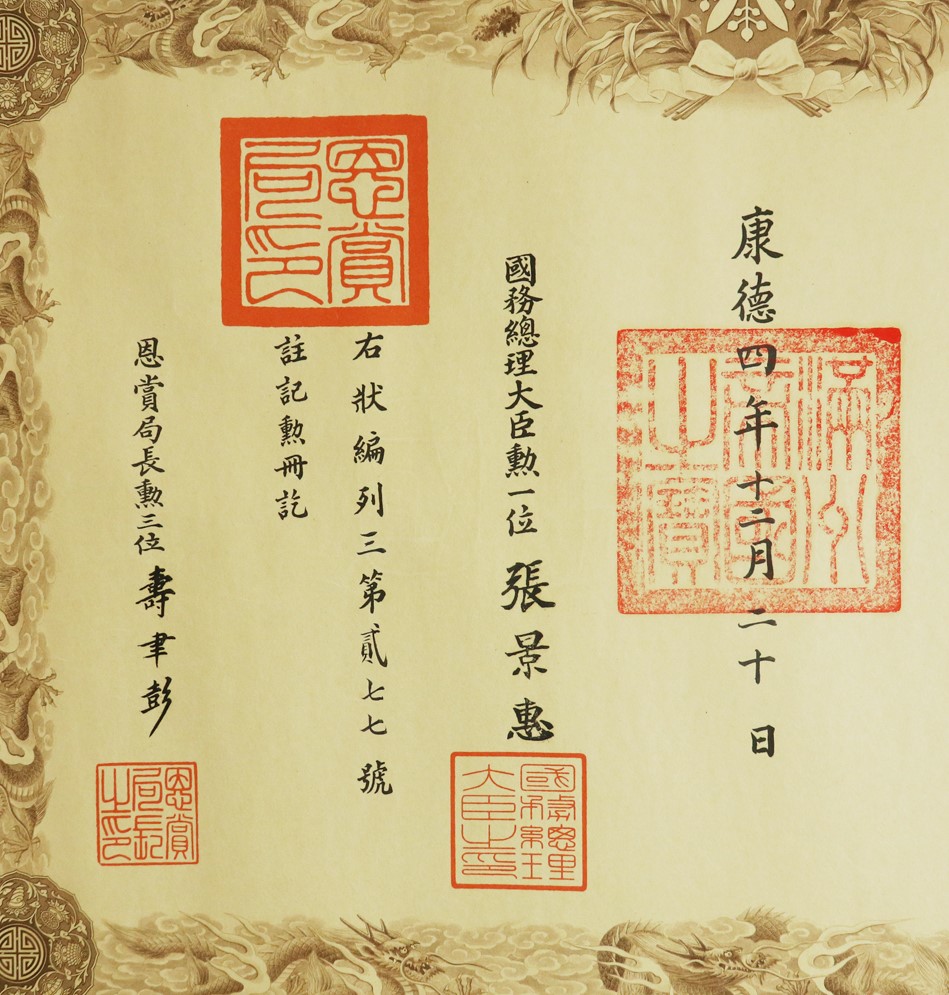 康德四年十二月二十日
滿洲帝國之寶
國務總理大臣勳一位 張景惠
國務總理大臣之印
右狀編列三第貳七七號
註記勳冊訖
恩賞局印
恩賞局長勳三位 壽聿彭
恩賞局長之印